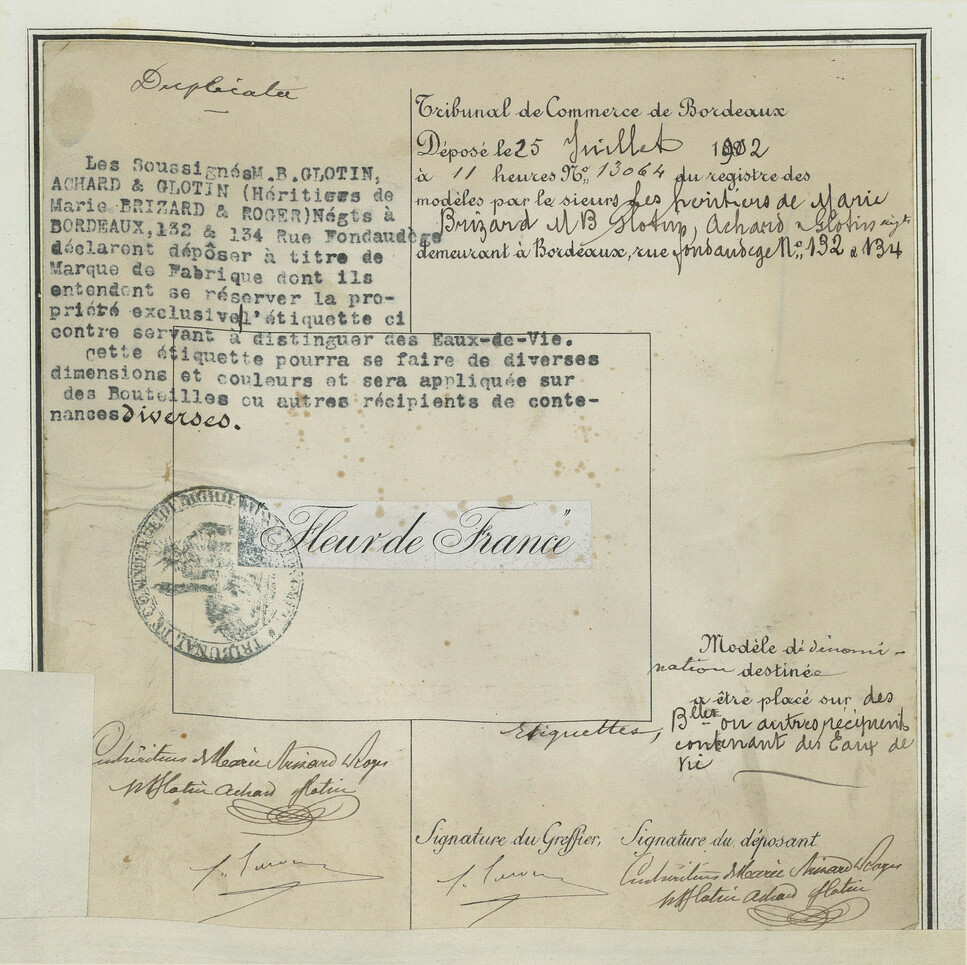 Duplicata
Les Soussignés M.B.GLOTIN,
ACHARD & GLOTIN (Héritiers de
Marie BRIZARD & ROGER)Négts à
BORDEAUX,132 & 134 Rue Fondaudège
déclarent dépôser à titre de
Marque de Fabrique dont ils
entendent se réserver la pro-
priété exclusive l'étiquette ci
contre servant à distinguer des Eaux-de-Vie.
cette étiquette pourra se faire de diverses
dimensions et couleurs et sera appliquée sur
des Bouteilles ou autres récipients de conte-
nances diverses.
Tribunal de Commerce de Bordeaux
Déposé le 25 Juillet 1902
à 11 heures No, 13064 du registre des
modèles par le sieurs Les héritiers de Marie
Brizard MB Glotin, Achard & Glotin négts
demeurant à Bordeaux, rue fondaudege No, 132 & 134
"Fleur de France"
TRIBUNAL DE COMMERCE
Modèle de dénomi-
nation destinée
a être placé sur des
Etiquettes, Blles ou autres récipients
contenant des Eaux de
Vie
Les héritiers de Marie Brizard & Roger
MB Glotin Achard Glotin
Signature du Greffier, Signature du déposant
Les héritiers de Marie Brizard & Roger
MB Glotin Achard Glotin